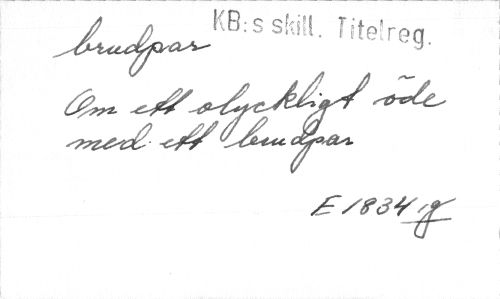 KB:s skill. Titelreg.
brudpar
Om ett olyckligt öde
med ett brudpar
E 1834 g